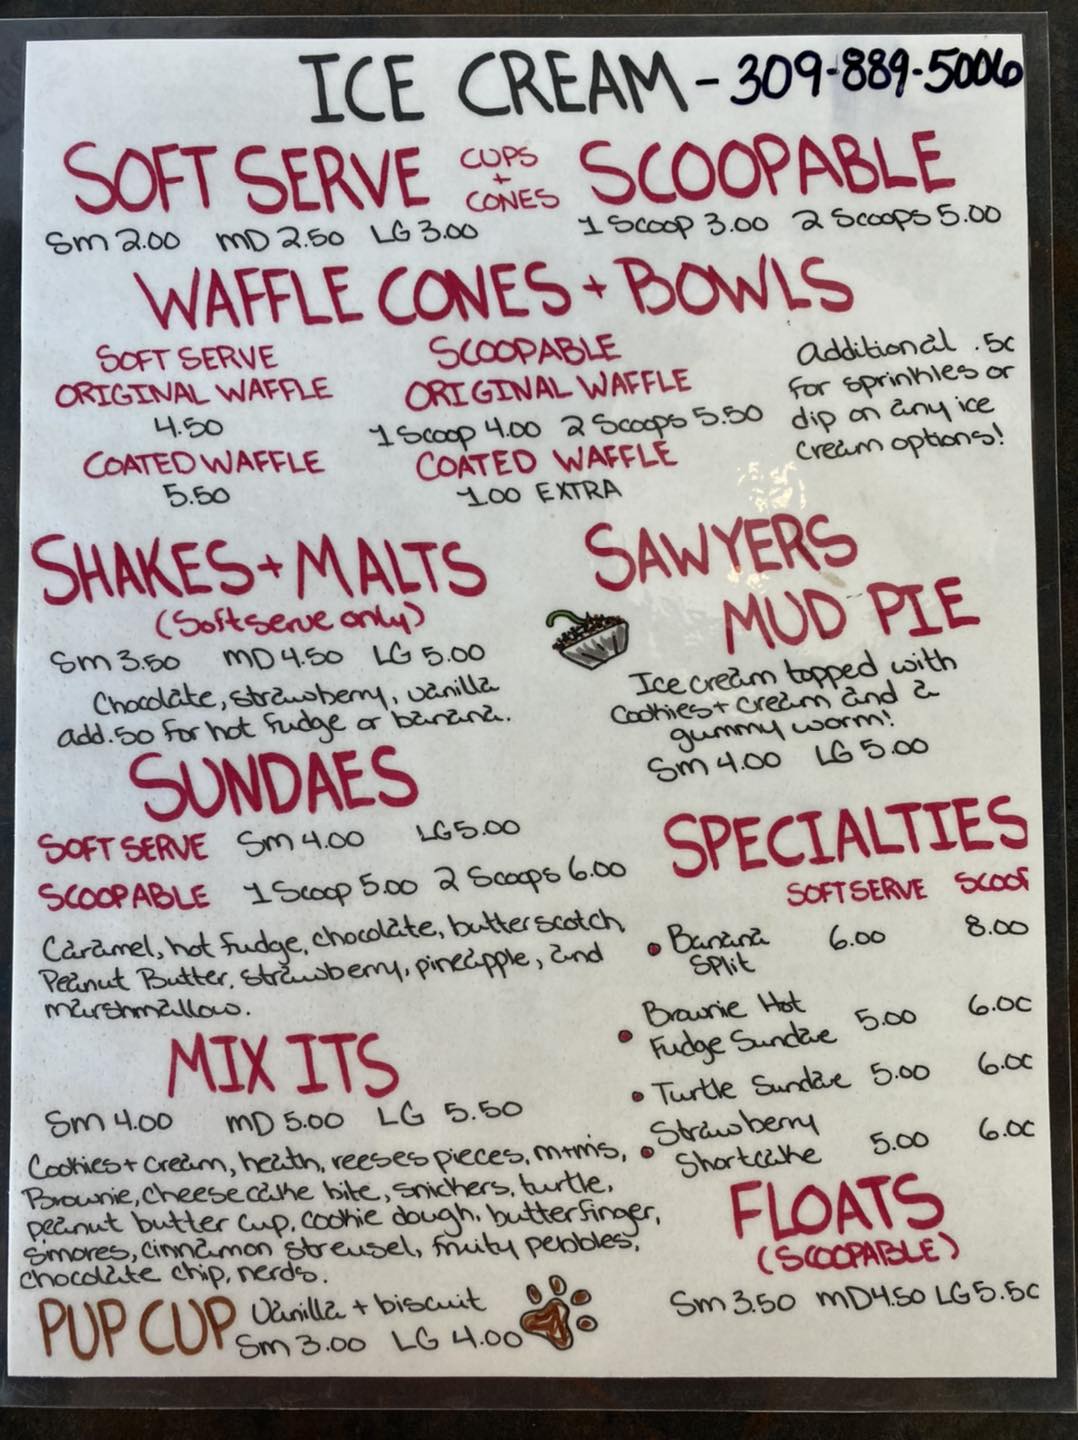 ICE CREAM - 309-889-5006
SOFT SERVE CUPS + CONES SCOOPABLE
Sm 2.00 MD 2.50 LG 3.00 1 Scoop 3.00 2 Scoops 5.00
WAFFLE CONES + BOWLS
SOFT SERVE
ORIGINAL WAFFLE
4.50
COATED WAFFLE
5.50
SCOOPABLE
ORIGINAL WAFFLE
1 Scoop 4.00 2 Scoops 5.50
COATED WAFFLE
1.00 EXTRA
Additional .50
for sprinkles or
dip on any ice
cream options!
SHAKES + MALTS
(Softserve only)
Sm 3.50 MD 4.50 LG 5.00
Chocolate, strawberry, vanilla
add .50 for hot fudge or banana.
SAWYERS
MUD PIE
Ice cream topped with
cookies + cream and a
gummy worm!
Sm 4.00 LG 5.00
SUNDAES
SOFT SERVE Sm 4.00 LG 5.00
SCOOPABLE 1 Scoop 5.00 2 Scoops 6.00
Caramel, hot fudge, chocolate, butterscotch,
Peanut Butter, strawberry, pineapple, and
marshmallow.
SPECIALTIES
SOFT SERVE SCOOP
• Banana Split 6.00 8.00
• Brownie Hot
Fudge Sundae 5.00 6.00
• Turtle Sundae 5.00 6.00
• Strawberry
Shortcake 5.00 6.00
MIX ITS
Sm 4.00 MD 5.00 LG 5.50
Cookies + cream, heath, reeses pieces, m+m's,
Brownie, cheesecake bite, snickers, turtle,
peanut butter cup, cookie dough, butterfinger,
s'mores, cinnamon streusel, fruity pebbles,
chocolate chip, nerds.
FLOATS
(SCOOPABLE)
Sm 3.50 MD 4.50 LG 5.50
PUP CUP Vanilla + biscuit
Sm 3.00 LG 4.00